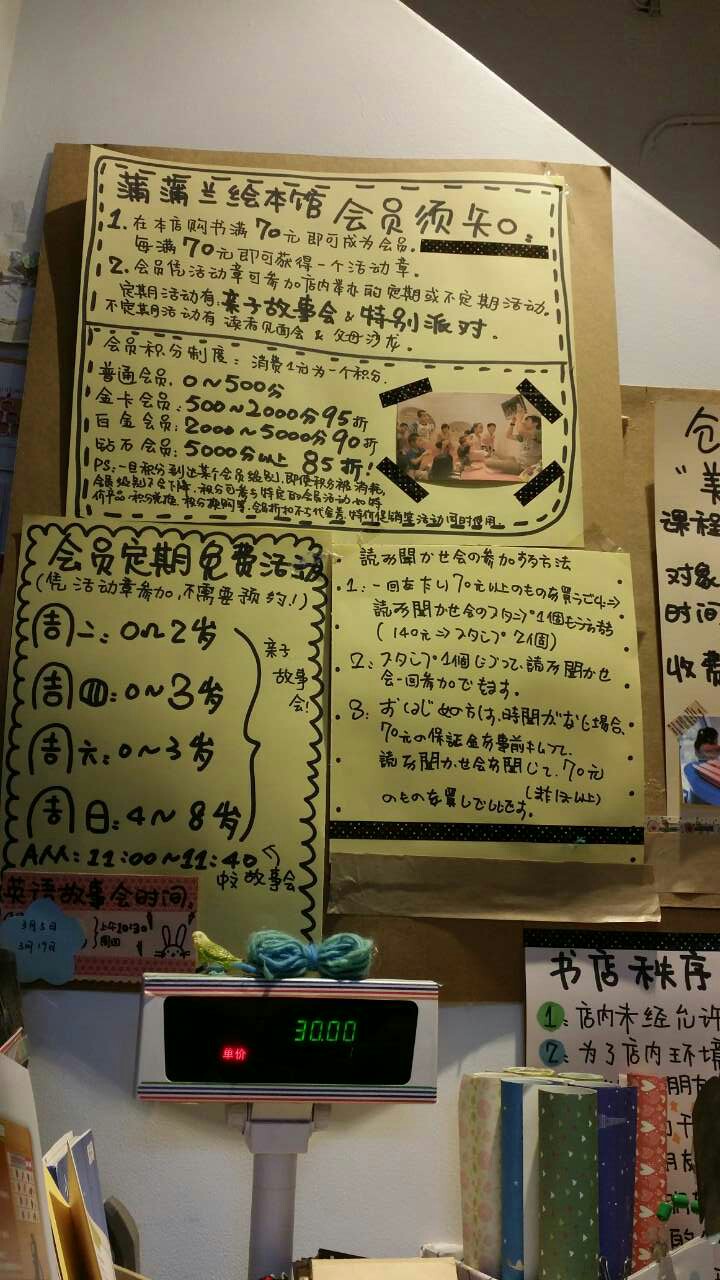 蒲蒲兰绘本馆 会员须知。
1. 在本店购书满70元即可成为会员.
每满70元即可获得一个活动章.
2. 会员凭活动章可参加店内举办的定期或不定期活动.
定期活动有:亲子故事会 & 特别派对.
不定期活动有 读者见面会 & 父母沙龙.
会员积分制度: 消费1元为一个积分.
普通会员. 0~500分
金卡会员: 500~2000分 95折
白金会员: 2000~5000分 90折
钻石会员: 5000分以上 85折!
PS: 一旦积分到达某个会员级别, 即使积分被消耗,
会员级别不会下降.
会员定期免费活动
(凭活动章参加, 不需要预约!)
周二: 0~2岁
周四: 0~3岁
周六: 0~3岁
周日: 4~8岁
亲子
故事
会
AM: 11:00~11:40
中文故事会
英语故事会时间.
3月5日
3月19日
上午10:30
周四
読み聞かせ会の参加する方法
1: 一回を
70元以上のものを買う
読み聞かせ会のスタンプ1個もらえる
(140元⇒スタンプ2個)
2: スタンプ1個につて、読み聞かせ
会一回参加できます。
3: おはじめの方は、時間がない場合、
70元の保証金を事前
読み聞かせ会を聞
70元
のものを買
です。
课程
对象
时间
收费
30.00
单价
书店秩序
1: 店内未经允许
2: 为了店内环境
朋友